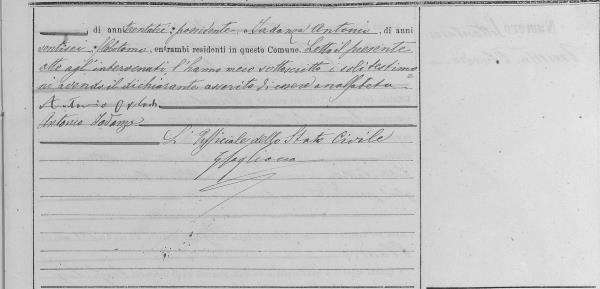 di anni trentatre, possidente e Tadanza Antonio, di anni
ventisei, entrambi residenti in questo Comune. Letto il presente
atto agli intervenuti l'hanno meco sottoscritto i soli testimo
ni avendo il dichiarante asserito di essere analfabeta=
Antonio
Antonio Tadanza
L'Uffiziale dello Stato Civile